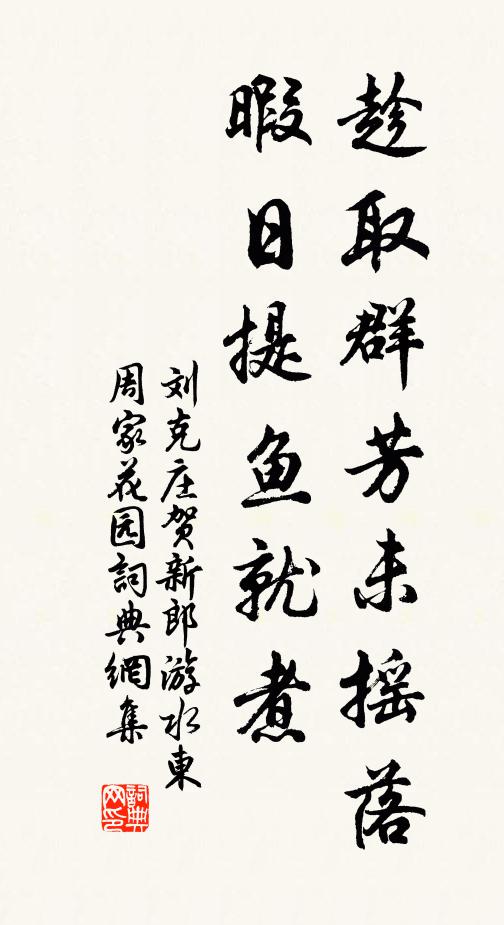 趁取群芳未摇落
暇日提鱼就煮
刘克庄贺新郎游水東
周家花园詞典網集
詞典
网印